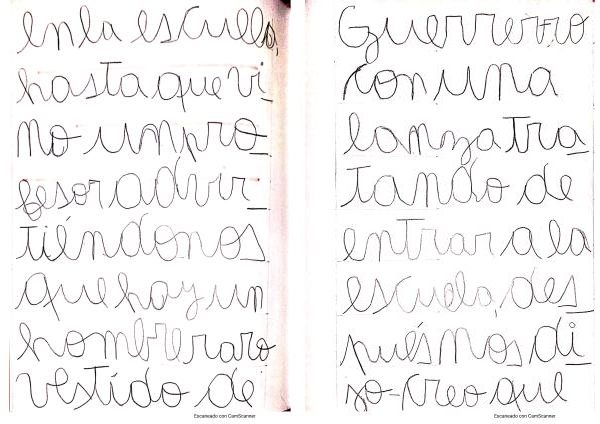 en la escuella,
hasta que vi_
no un pro_
fesor advir_
tiéndonos
que hay un
hombre raro
vestido de
Escaneado con CamScanner
Guerrerro
con una
lanza tra_
tando de
entrar a la
escuela, des_
pués nos di_
zo-creo que
Escaneado con CamScanner